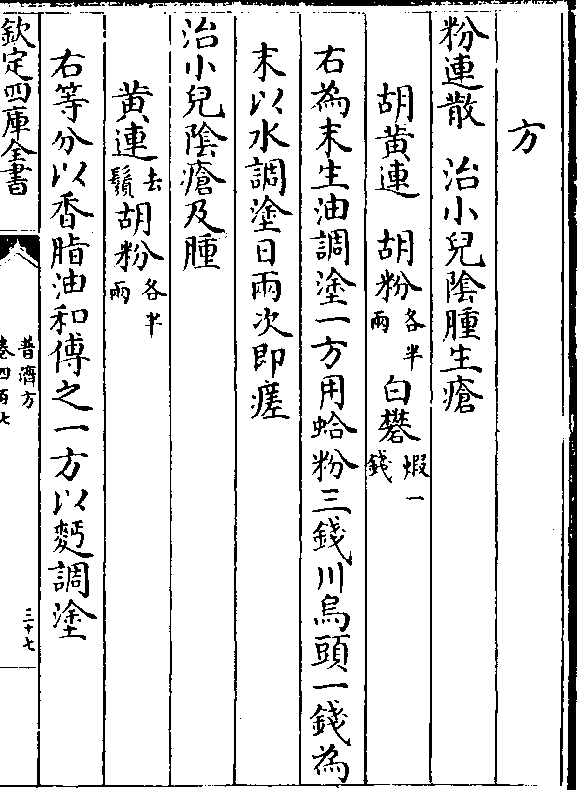 方
粉連散　治小兒陰腫生瘡
胡黄連　胡粉各半兩　白礬煅一錢
右為末生油調塗一方用蛤粉三錢川烏頭一錢為
末以水調塗日兩次即瘥
治小兒陰瘡及腫
黄連去鬚　胡粉各半兩
右等分以香脂油和傅之一方以麫調塗
欽定四庫全書
普濟方
卷四百七
三十七